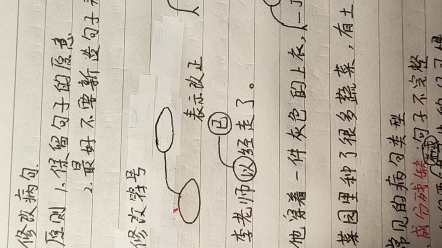 修改病句
原则 1. 保留句子的原意
2. 最好不要新造句子
修改符号
表示改正
李老师以已经走了。
他穿着一件灰色的上衣,一
菜园里种了很多蔬菜,有土
常见的病句类型
成分残缺 句子不完整